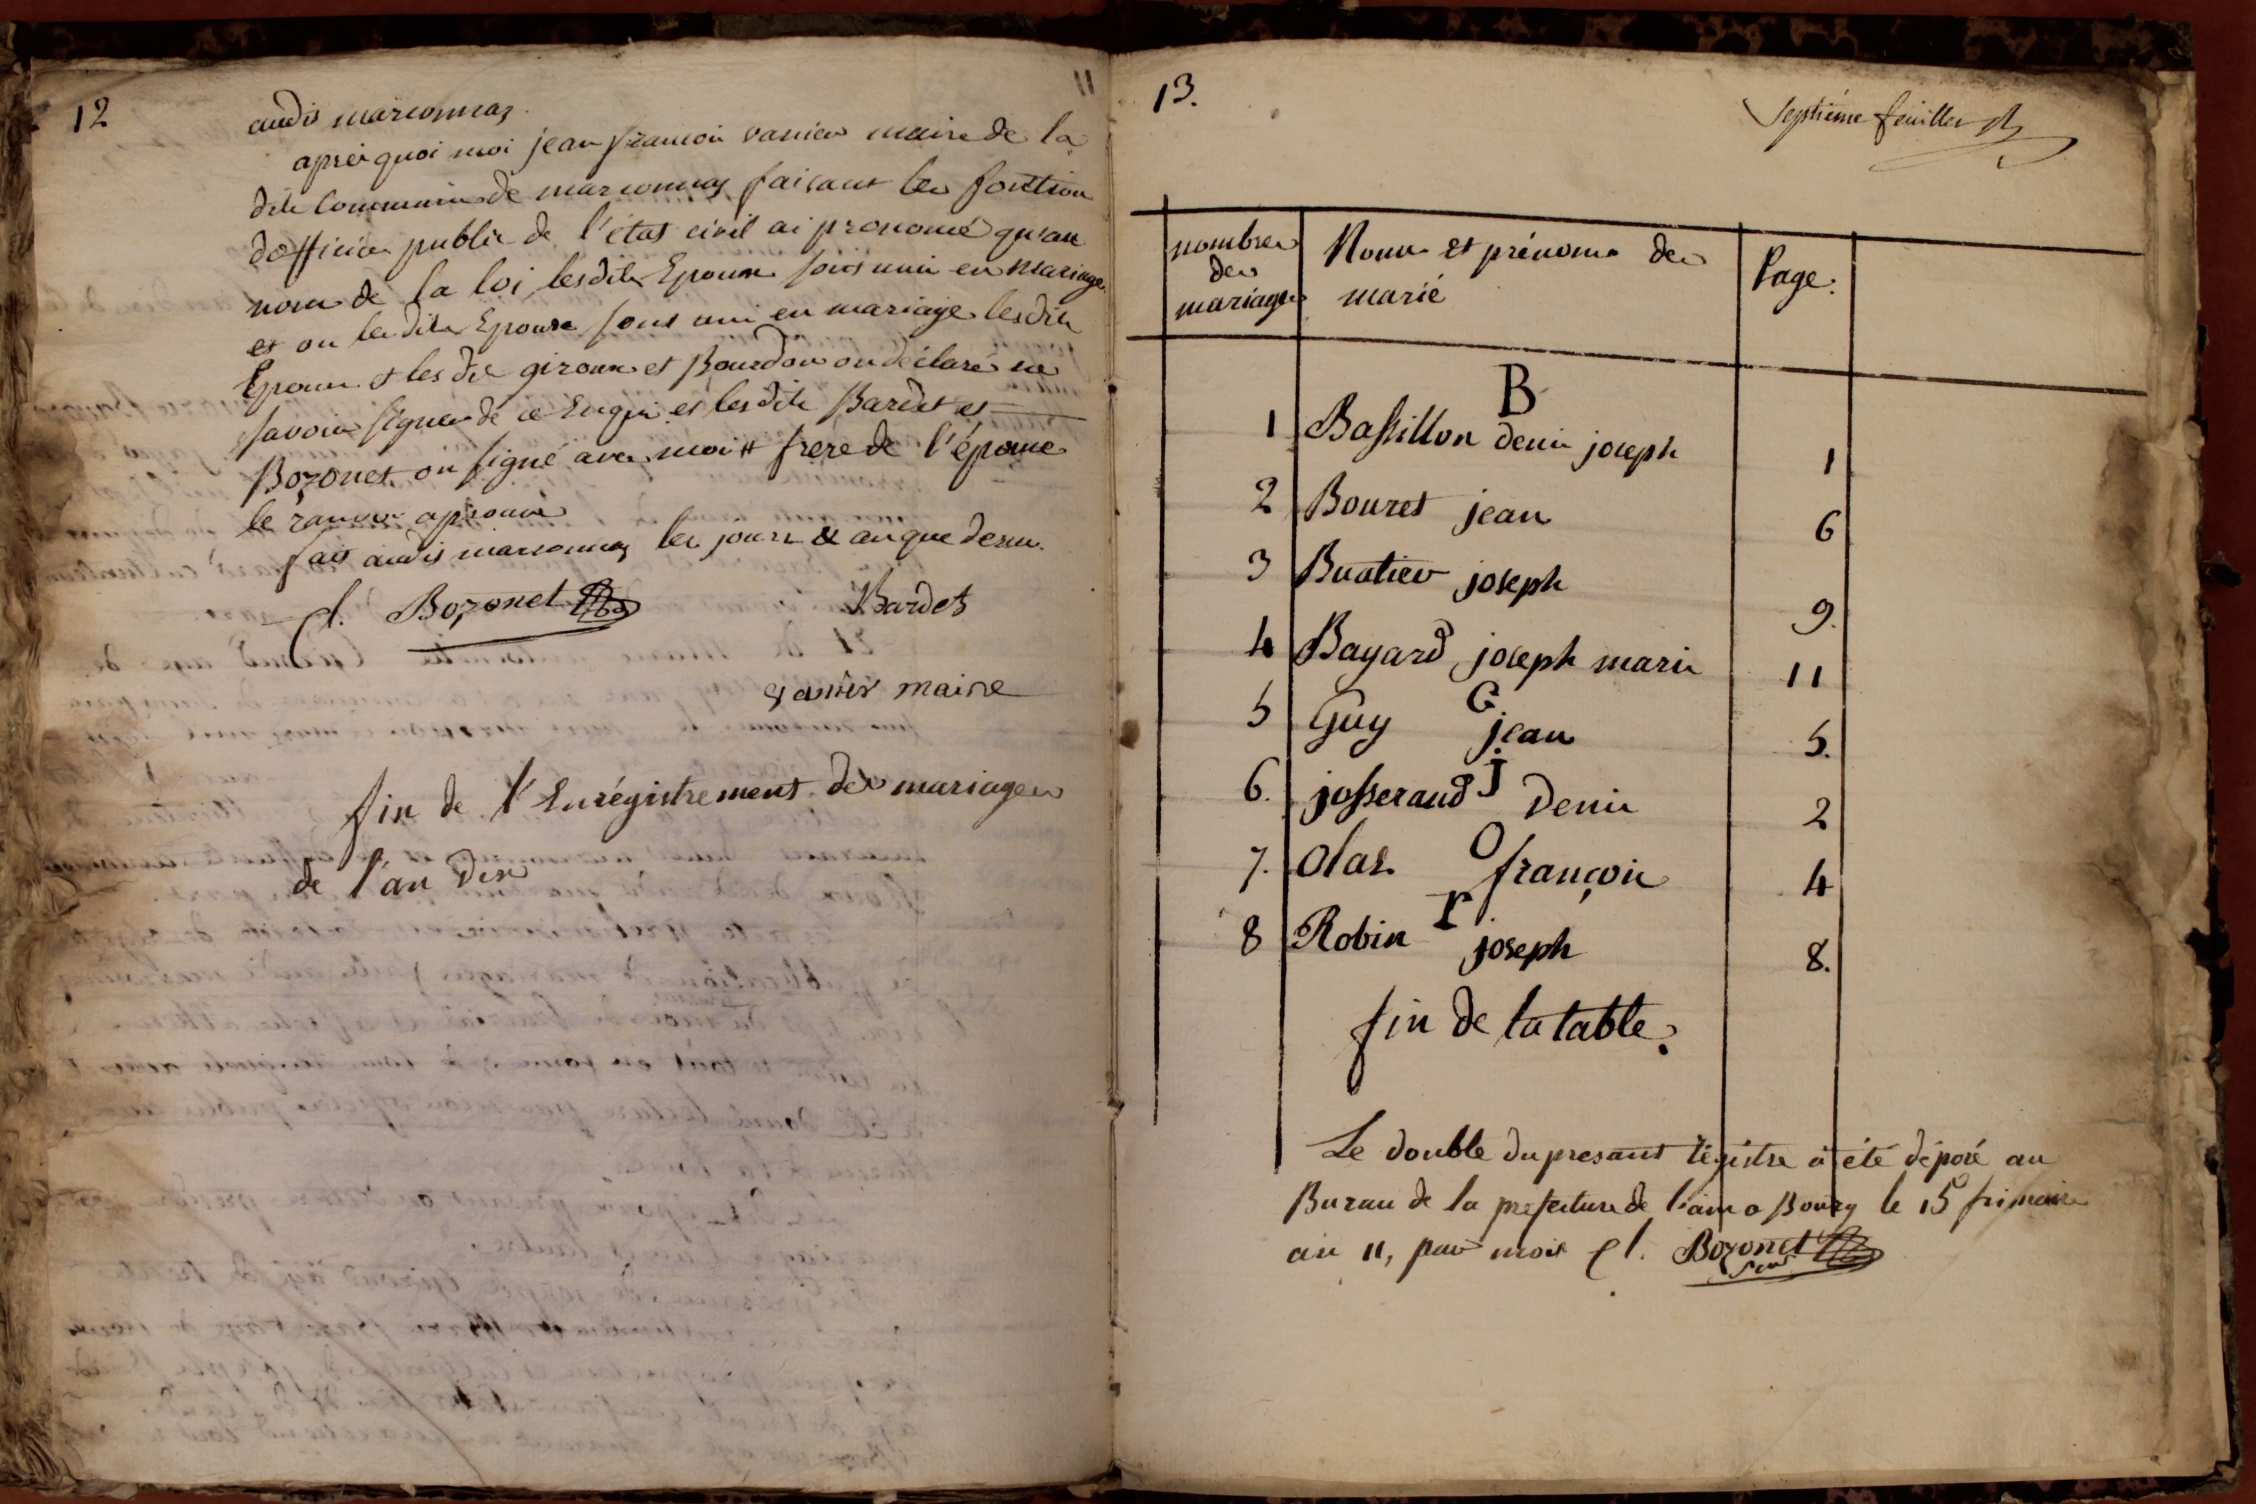 12
11
audis marconnas
après quoi moi jean françois vanier maire de la
dite Commune de marconnas faisant les fonction
d'officier public de l'état civil ai prononcé qu'au
nom de la loi, lesdits Epoux sont unis en Mariage
et ou lesdits Epoux sont uni en mariage lesdits
Epoux et lesdit giroux et Bourdon on déclaré ne
savoir signer de ce Enquis et lesdits Bardet et
Bozonet on signé avec moi # frere de l'épouse
le ranvoi aprouvé
fait audis marconnas les jours & an que dessu.
Cl. Bozonet
Bardet
vanier maire
fin de l'Enrégistrement des mariages
de l'an dix
13.
Septième feuillet
nombres Noms et prénoms des Page.
des
mariages marié
B
1 Bassillon denis joseph 1
2 Bouret jean 6
3 Buatier joseph 9.
4 Bayard joseph marie 11
G
5 Guy jean 5.
J
6. josserand Denis 2
O
7. Olas françois 4
r
8 Robin joseph 8.
fin de la table.
Le double du presant régistre à été déposé au
Bureau de la prefecture de l'ain a Bourg le 15 frimaire
an 11, par moi Cl. Bozonet